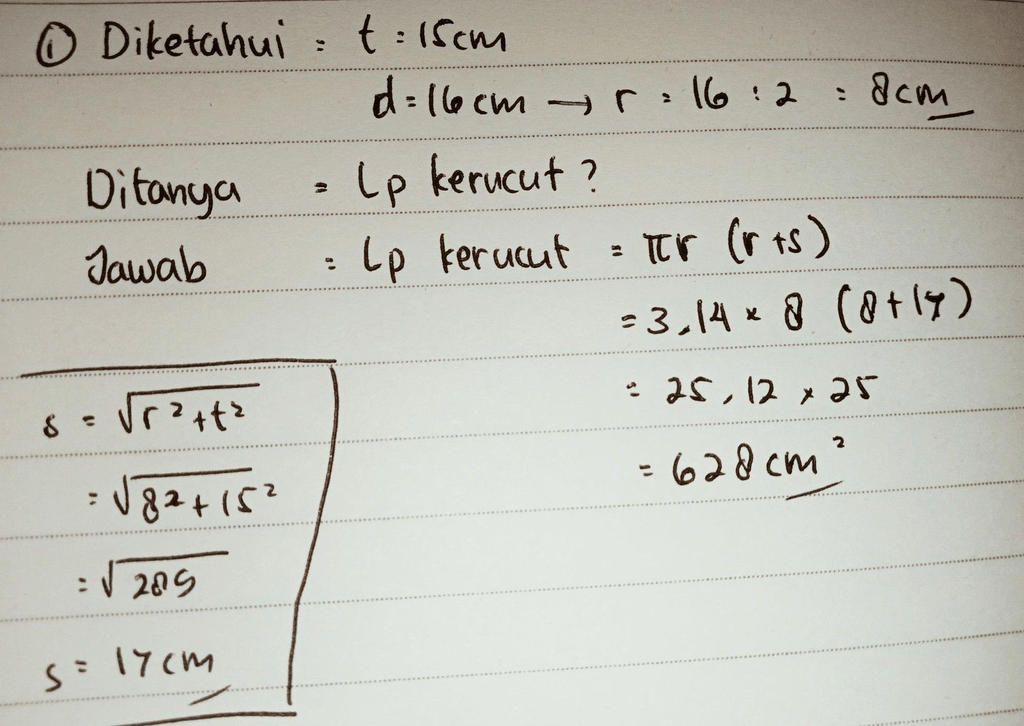 ① Diketahui : t = 15cm
d = 16cm → r = 16 : 2 = 8cm
Ditanya = Lp kerucut ?
Jawab : Lp kerucut = πr (r+s)
= 3,14 × 8 (8+17)
= 25,12 × 25
= 628cm²
s = √r²+t²
= √8²+15²
= √289
s = 17cm